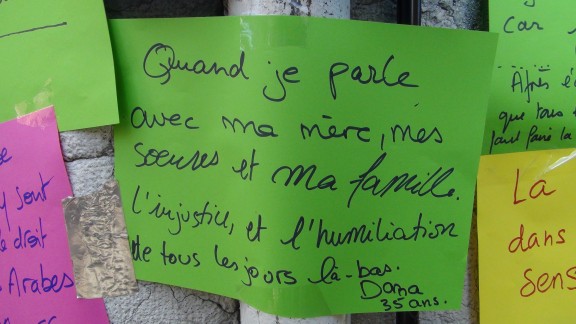 Quand je parle
avec ma mère, mes
soeures et ma famille.
l'injustice, et l'humiliation
de tous les jours là-bas.
Dorna
35 ans.
Car
Après
que tous
faire la
La
dans
sens
sont
droit
Arabes